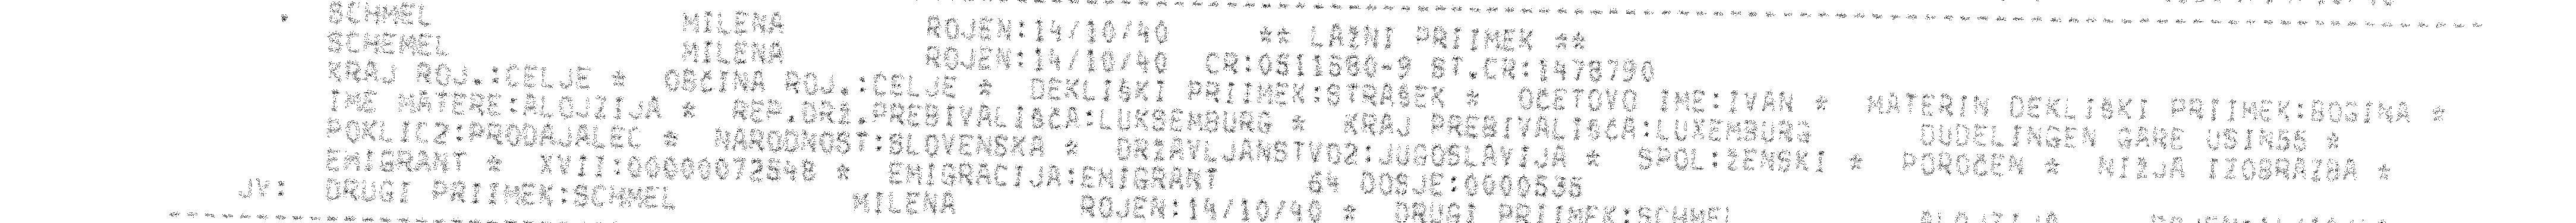 SCHMEL MILENA ROJEN:14/10/40 ** LAŽNI PRIIMEK **
SCHEMEL MILENA ROJEN:14/10/40 CR:0511580-9 ST.CR:1478790
KRAJ ROJ.:CELJE * OBČINA ROJ.:CELJE * DEKLIŠKI PRIIMEK:STRAŠEK * OČETOVO IME:IVAN * MATERIN DEKLIŠKI PRIIMEK:BOGINA *
IME MATERE:ALOJZIJA * REP.DRŽ.PREBIVALIŠČA:LUKSEMBURG * KRAJ PREBIVALIŠČA:LUXEMBURG DUDELINGEN GARE USIN55 *
POKLIC2:PRODAJALEC * NARODNOST:SLOVENSKA * DRŽAVLJANSTVO2:JUGOSLAVIJA * SPOL:ŽENSKI * POROČEN * NIŽJA IZOBRAZBA *
EMIGRANT * XVII:00000072548 * EMIGRACIJA:EMIGRANT 64 DOSJE:0000535
JV: DRUGI PRIIMEK:SCHMEL MILENA ROJEN:14/10/40 * DRUGI PRIIMEK:SCHMEL ALOJZIJA